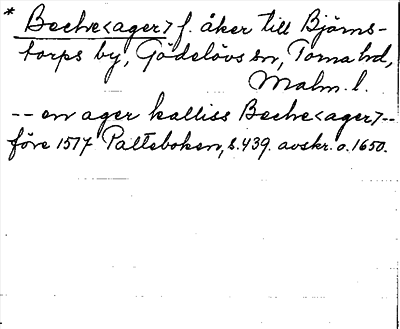 * Beche<ager> f. åker till Björns-
torps by, Gödelövs sn, Torna hd,
Malm. l.
-- en ager kalliss Beche<ager> --
före 1517 Palteboken, s. 439. avskr. o. 1650.